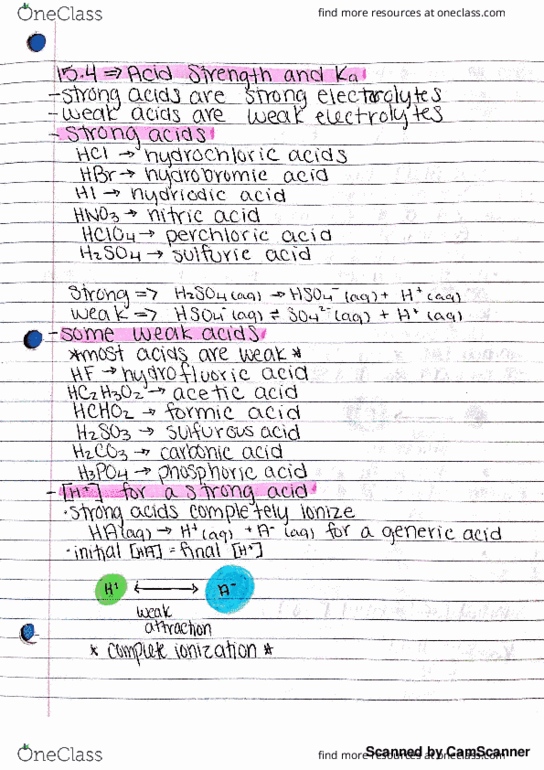 OneClass
find more resources at oneclass.com
15.4 ⇒ Acid Strength and Ka
- strong acids are strong electrolytes
- weak acids are weak electrolytes
- strong acids
HCl → hydrochloric acids
HBr → hydrobromic acid
HI → hydriodic acid
HNO₃ → nitric acid
HClO₄ → perchloric acid
H₂SO₄ → sulfuric acid
Strong => H₂SO₄(aq) → HSO₄⁻(aq) + H⁺(aq)
weak => HSO₄⁻(aq) ⇌ SO₄²⁻(aq) + H⁺(aq)
- some weak acids
*most acids are weak*
HF → hydrofluoric acid
HC₂H₃O₂ → acetic acid
HCHO₂ → formic acid
H₂SO₃ → sulfurous acid
H₂CO₃ → carbonic acid
H₃PO₄ → phosphoric acid
- [H⁺] for a strong acid
· strong acids completely ionize
HA(aq) → H⁺(aq) + A⁻(aq) for a generic acid
· initial [HA] = final [H⁺]
H⁺ ⟷ A⁻
weak
attraction
* complete ionization *
Scanned by CamScanner
OneClass
find more resources at oneclass.com